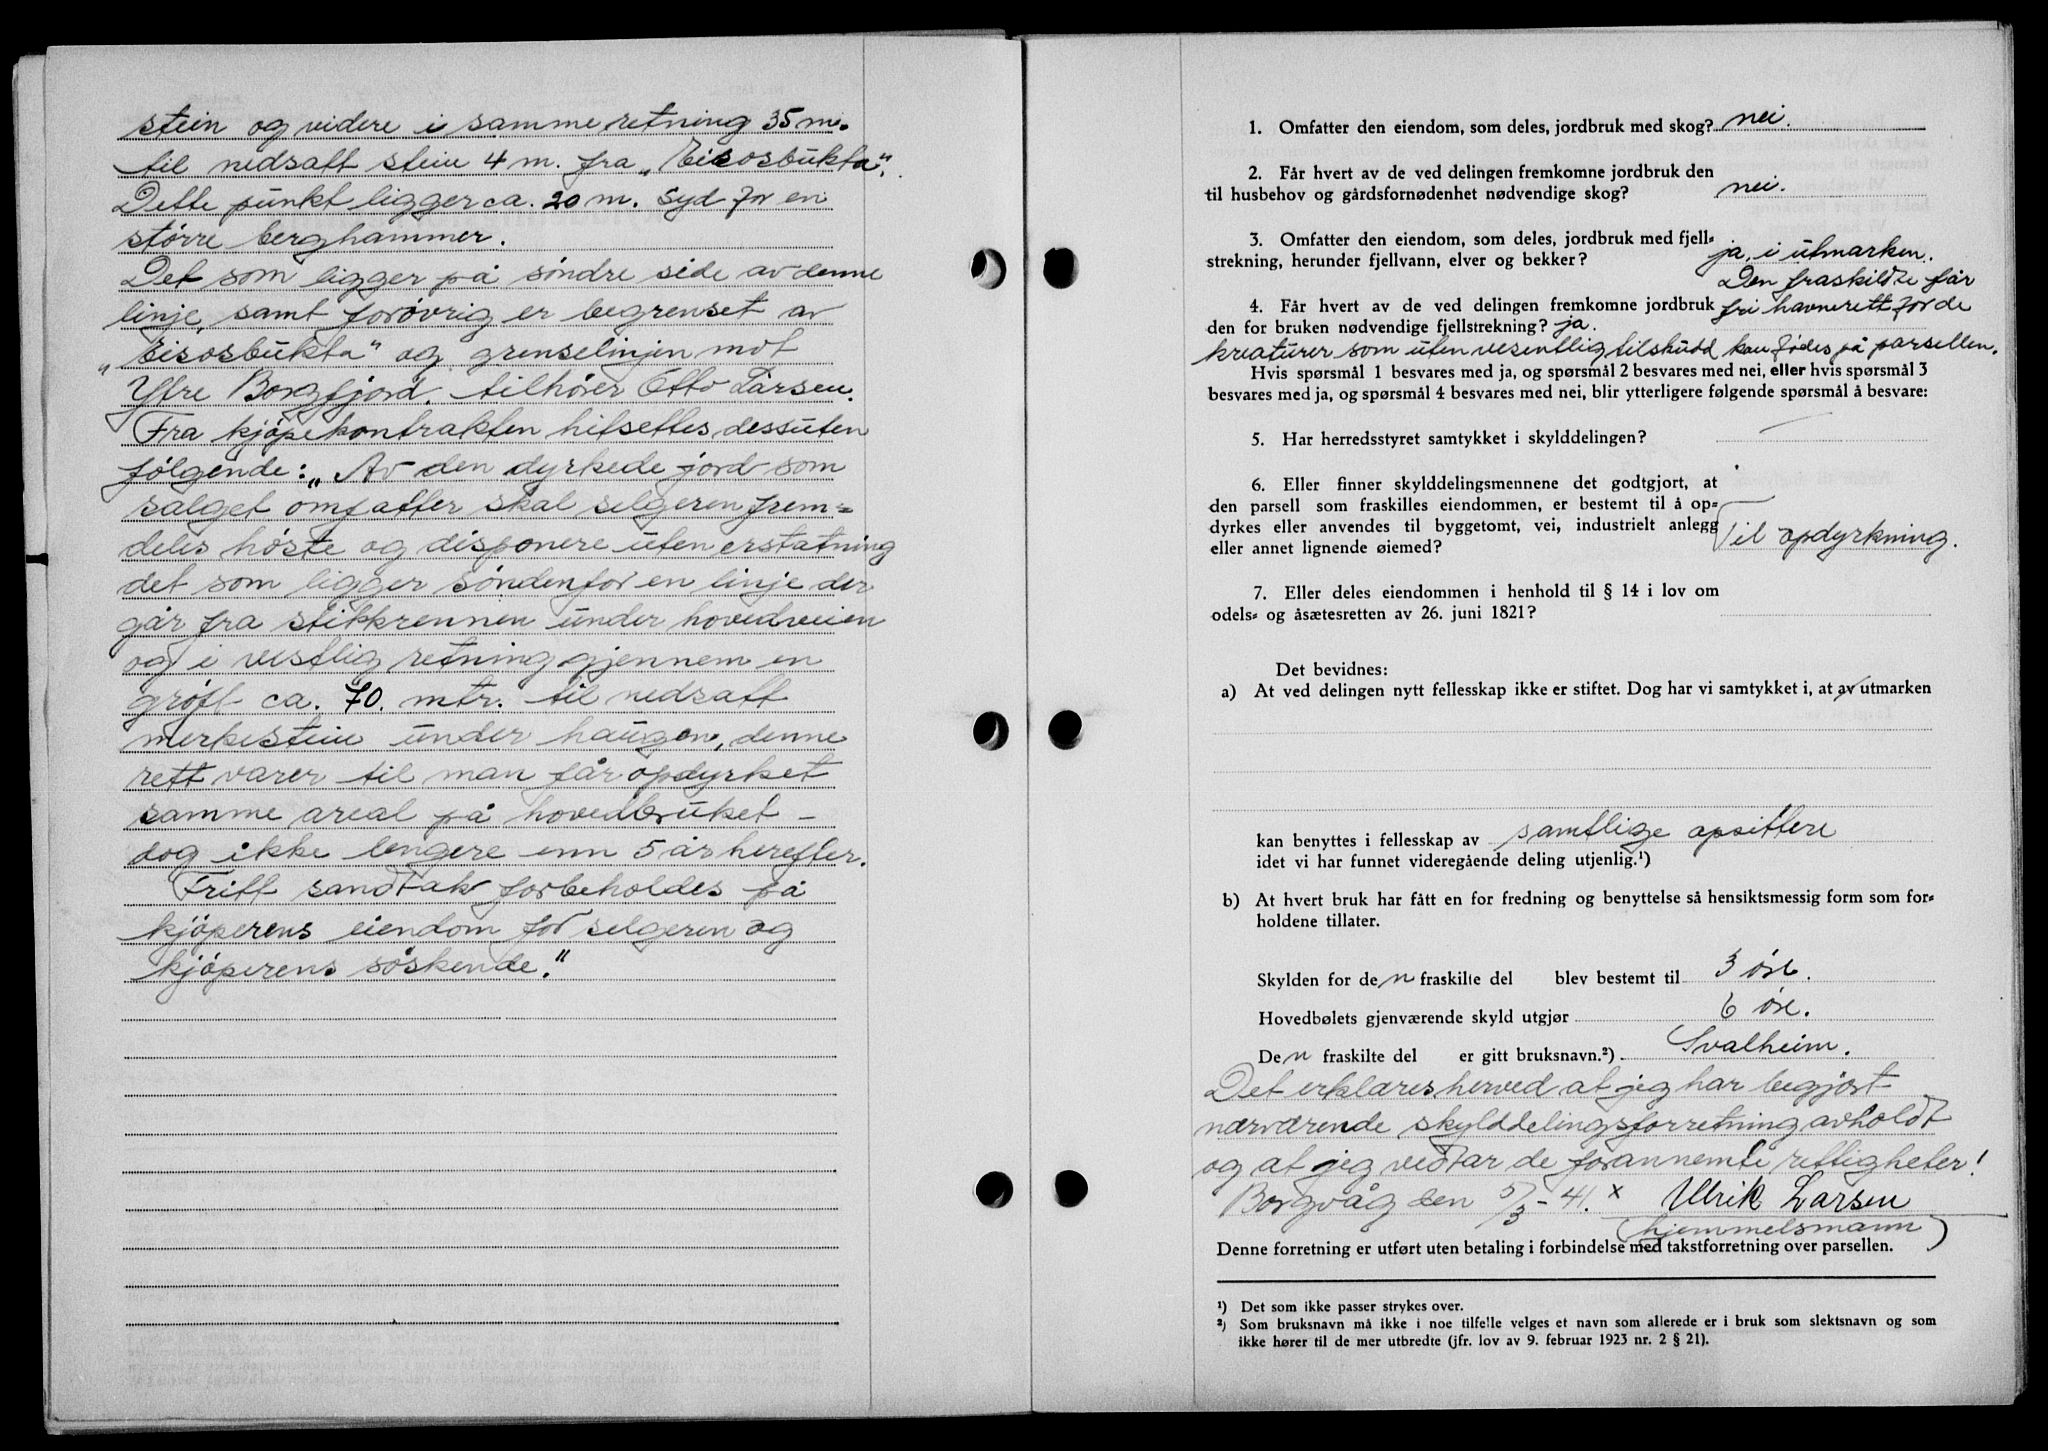 stein og videre i samme retning 35 m.
til nedsatt stein 4 m. fra „Eisosbukta".
Dette punkt ligger ca. 20 m. syd for en
større berghammer.
Det som ligger på søndre side av denne
linje, samt forøvrig er begrenset av
„Eisosbukta" og grenselinjen mot
Ytre Borgfjord. tilhører Otto Larsen.
Fra kjøpekontrakten hitsettes dessuten
følgende: „Av den dyrkede jord som
salget omfatter skal selgeren frem=
deles høste og disponere uten erstatning
det som ligger sønden for en linje der
går fra stikkrennen under hovedveien
og i vestlig retning gjennem en
grøft ca. 70. mtr. til nedsatt
merkestein under haugen, denne
rett varer til man får opdyrket
samme areal på hovedbruket –
dog ikke lengere enn 5 år herefter.
Fritt sandtak forbeholdes på
kjøperens eiendom for selgeren og
kjøperens søskende."
1. Omfatter den eiendom, som deles, jordbruk med skog? nei.
2. Får hvert av de ved delingen fremkomne jordbruk den
til husbehov og gårdsfornødenhet nødvendige skog? nei.
3. Omfatter den eiendom, som deles, jordbruk med fjell=
strekning, herunder fjellvann, elver og bekker? ja, i utmarken.
Den fraskildte får
4. Får hvert av de ved delingen fremkomne jordbruk fri havnerett for de
den for bruken nødvendige fjellstrekning? ja.
kreaturer som uten vesentlig tilskudd kan fødes på parsellen.
Hvis spørsmål 1 besvares med ja, og spørsmål 2 besvares med nei, eller hvis spørsmål 3
besvares med ja, og spørsmål 4 besvares med nei, blir ytterligere følgende spørsmål å besvare:
5. Har herredsstyret samtykket i skylddelingen? —
6. Eller finner skylddelingsmennene det godtgjort, at
den parsell som fraskilles eiendommen, er bestemt til å op=
dyrkes eller anvendes til byggetomt, vei, industrielt anlegg
eller annet lignende øiemed? Til opdyrkning.
7. Eller deles eiendommen i henhold til § 14 i lov om
odels= og åsætesretten av 26. juni 1821?
Det bevidnes:
a) At ved delingen nytt fellesskap ikke er stiftet. Dog har vi samtykket i, at av utmarken
kan benyttes i fellesskap av samtlige opsittere
idet vi har funnet videregående deling utjenlig.¹)
b) At hvert bruk har fått en for fredning og benyttelse så hensiktsmessig form som for=
holdene tillater.
Skylden for den fraskilte del blev bestemt til 3 øre.
Hovedbølets gjenværende skyld utgjør 6 øre.
Den fraskilte del er gitt bruksnavn.²) Svalheim.
Det erklæres herved at jeg har begjært
nærværende skylddelingsforretning avholdt
og at jeg vedtar de forannemte rettigheter!
Borgvåg den 5/3 – 41. x Ulrik Larsen
(hjemmelsmann)
Denne forretning er utført uten betaling i forbindelse med takstforretning over parsellen.
¹) Det som ikke passer strykes over.
²) Som bruksnavn må ikke i noe tilfelle velges et navn som allerede er i bruk som slektsnavn og som
ikke hører til de mer utbredte (jfr. lov av 9. februar 1923 nr. 2 § 21).